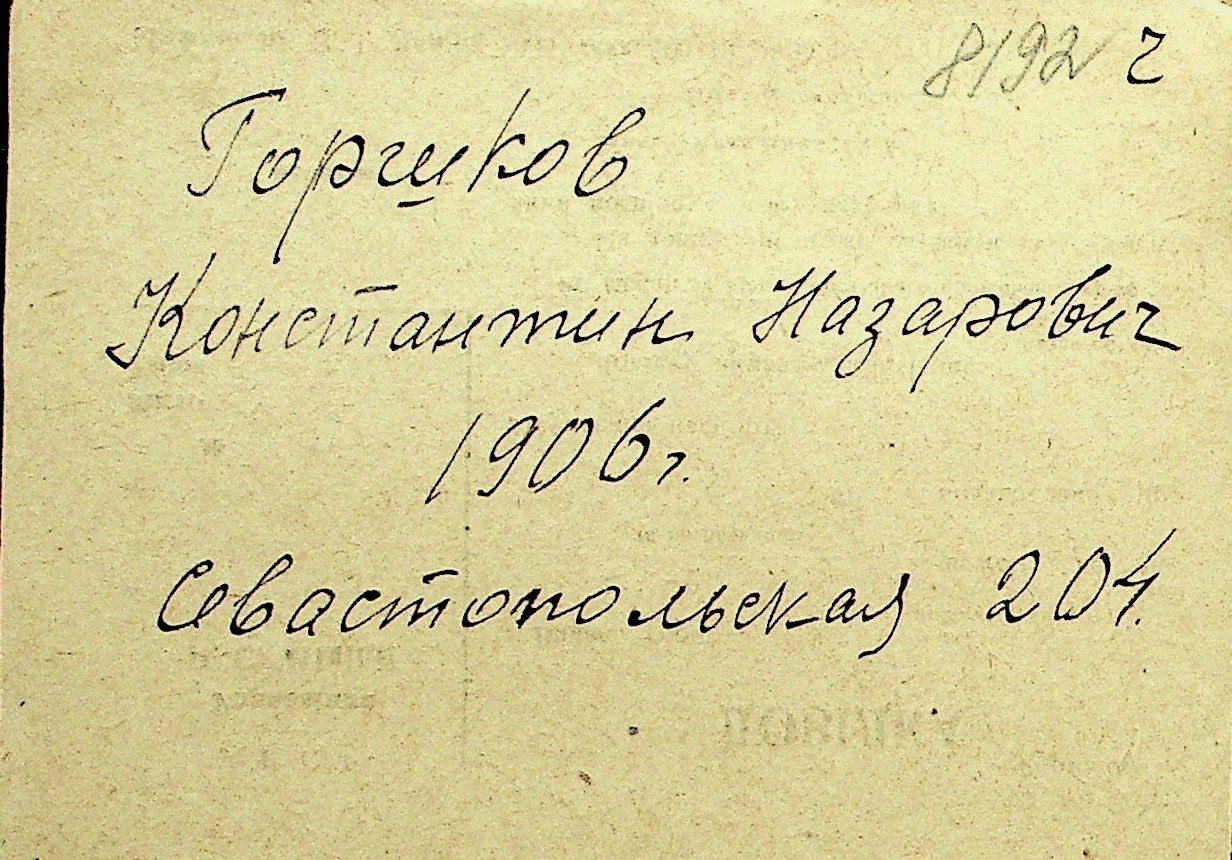 8192 г
Горшков
Константин Назарович
1906г.
Севастопольская 204.